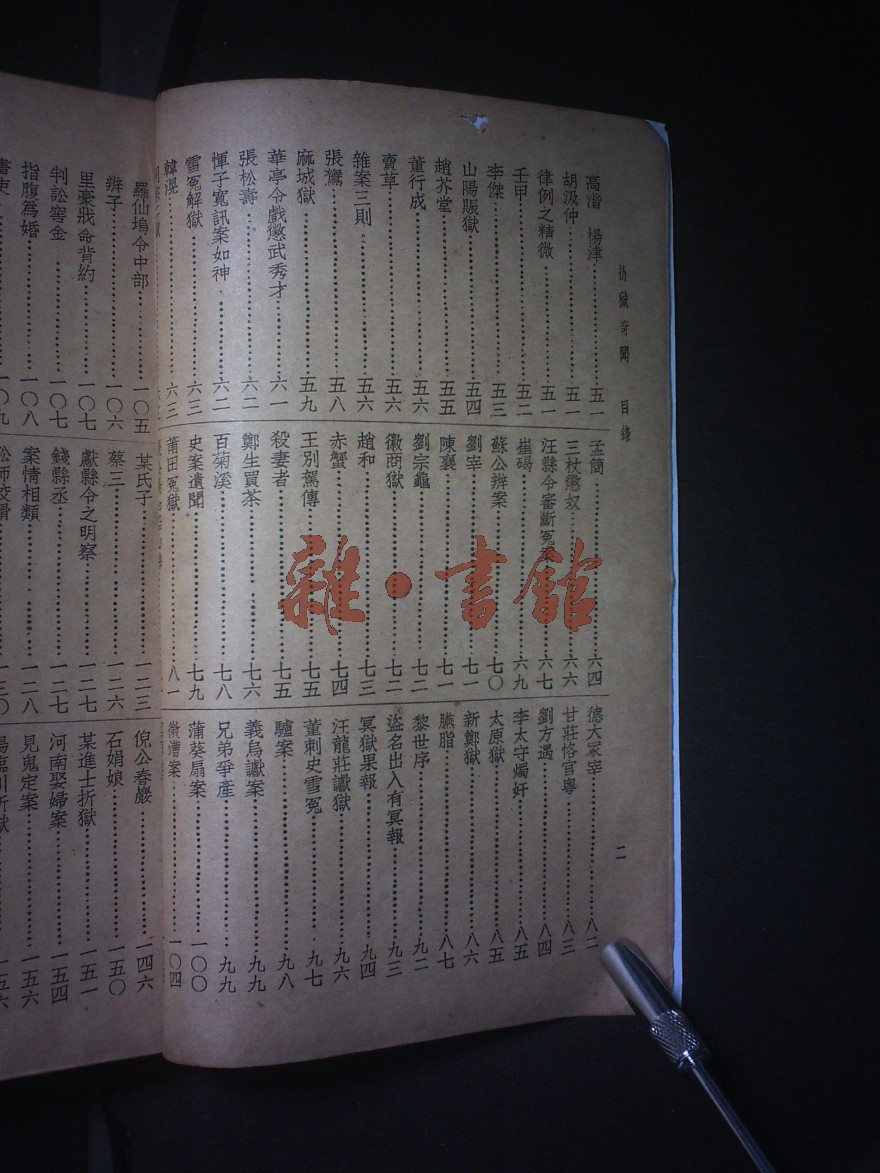 折獄奇聞 目錄
二
高澘 楊津……五一
胡汲仲……五一
律例之精微……五一
壬甲……五二
李傑……五三
山陽賑獄……五四
趙芥堂……五五
董行成……五六
賣草……五六
雜案三則……五六
張鷟……五八
麻城獄……五九
華亭令戲懲武秀才……六一
張松壽……六二
惲子寬訊案如神……六二
雪冤解獄……六三
韓滉……六三
孟簡……六四
三杖懲奴……六六
汪縣令審斷冤案……六七
崔碣……六九
蘇公辨案……七〇
劉宰……七一
陳襄……七一
劉宗龜……七二
徽商獄……七二
趙和……七三
赤蟹……七四
王別駕傳……七五
殺妻者……七五
鄭生買茶……七六
百菊溪……七八
史案遺聞……七九
莆田冤獄……八一
德大冢宰……八二
甘莊恪官粵……八三
劉方遇……八四
李太守燭奸……八五
太原獄……八五
新鄭獄……八六
臙脂……八七
黎世序……九二
盜名出入有冥報……九三
冥獄果報……九四
汪龍莊讞獄……九六
董刺史雪冤……九七
驢案……九八
義烏讞案……九九
兄弟爭產……九九
蒲葵扇案……一〇〇
徵漕案……一〇四
羅仙塢令中部……一〇五
辨子……一〇六
里豪戕命背約……一〇七
判訟窖金……一〇七
指腹爲婚……一〇八
書吏……一〇九
某氏子……一二三
蔡三……一二六
獻縣令之明察……一二七
錢縣丞……一二七
案情相類……一二八
訟師狡猾……一三〇
倪公春巖……一四六
石娟娘……一五〇
某進士折獄……一五一
河南娶婦案……一五四
見鬼定案……一五六
雜·書館